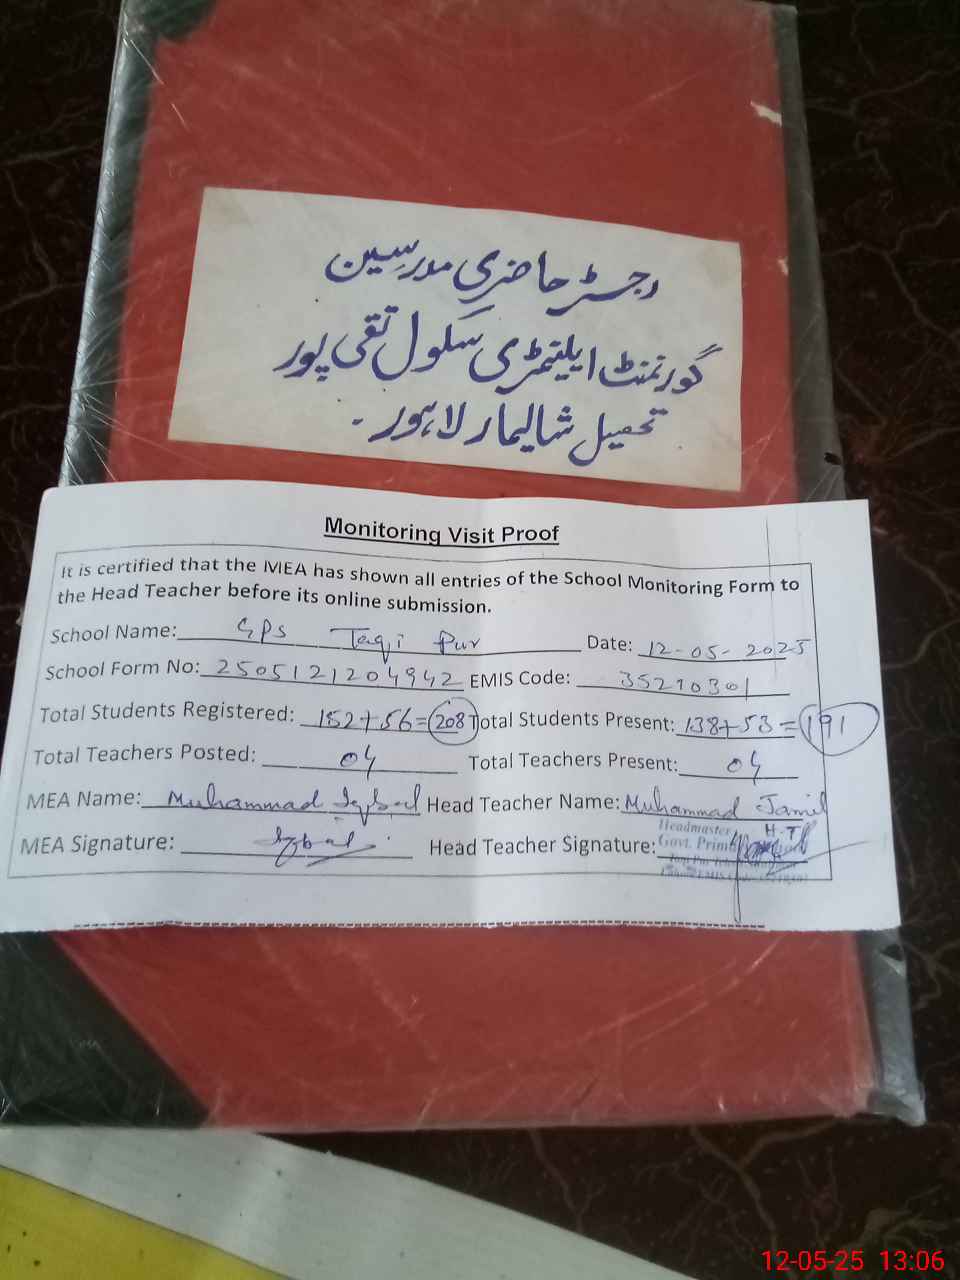 رجسٹر حاضری مدرسین
گورنمنٹ ایلیمنٹری سکول تقی پور
تحصیل شالیمار لاہور۔
Monitoring Visit Proof
It is certified that the MEA has shown all entries of the School Monitoring Form to
the Head Teacher before its online submission.
School Name: GPS Taqi Pur Date: 12-05-2025
School Form No: 2505121204942 EMIS Code: 35210301
Total Students Registered: 152+56=208 Total Students Present: 138+53=191
Total Teachers Posted: 04 Total Teachers Present: 04
MEA Name: Muhammad Iqbal Head Teacher Name: Muhammad Jamil
MEA Signature: Iqbal Head Teacher Signature: H.T
Headmaster
Govt. Primary School
12-05-25 13:06